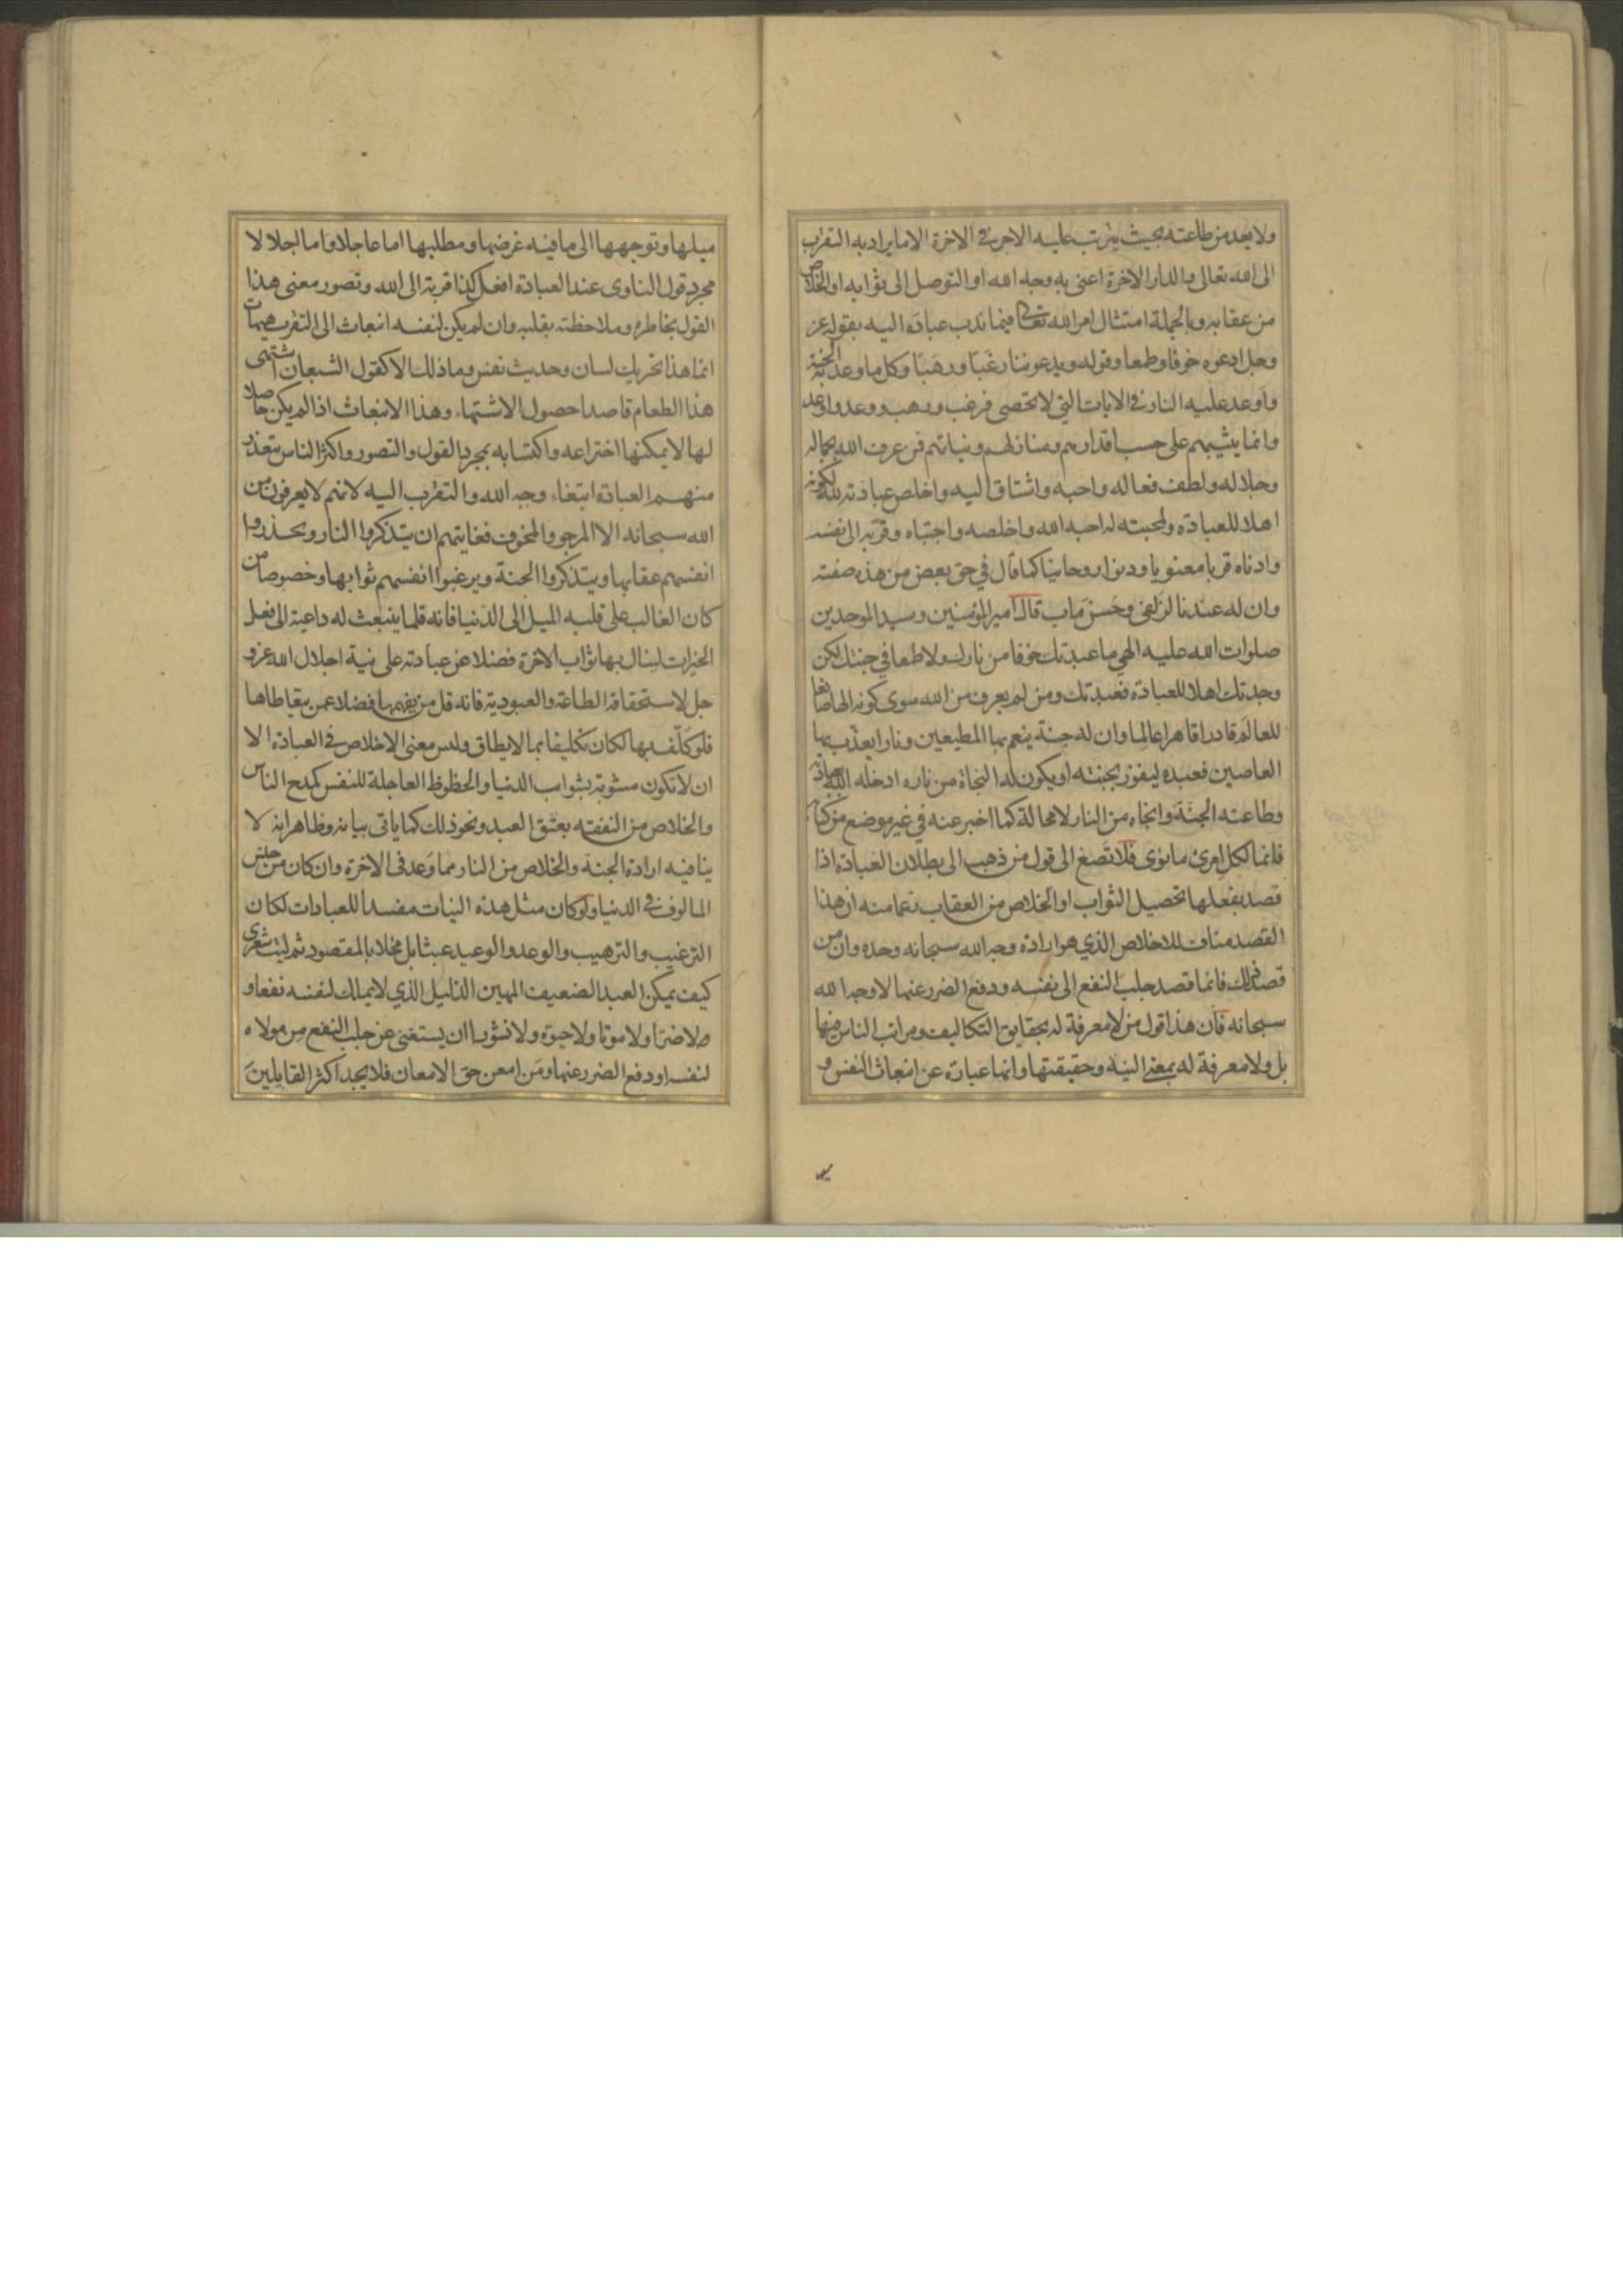 ولا يعد من طاعته بحيث يترتب عليه الاجر فى الاخرة الا ما يراد به التقرب
الى الله تعالى والدار الاخرة اعنى به وجه الله او التوصل الى ثوابه او الخلاص
من عقابه وبالجملة امتثال امر الله تعالى فيما ندب عباده اليه بقوله عز
وجل ادعوه خوفا وطمعا وقوله ويدعوننا رغبا ورهبا وكل ما وعد به الجنة
واوعد عليه النار فى الايات التى لا تحصى فرغب ورهب ووعد واوعد
وانما يثيبهم على حسب اقدارهم ومنازلهم ونياتهم فمن عرف الله بجماله
وجلاله ولطف فعاله واحبه واشتاق اليه واخلص عبادته لله لكونه
اهلا للعبادة ولمحبته له احبه الله واخلصه واجتباه وقربه الى نفسه
وادناه قربا معنويا ودنوا روحانيا كما قال في حق بعض من هذه صفته
وان له عندنا لزلفى وحسن ماب قال امير المؤمنين وسيد الموحدين
صلوات الله عليه الهي ما عبدتك خوفا من نارك ولا طمعا في جنتك لكن
وجدتك اهلا للعبادة فعبدتك ومن لم يعرف من الله سوى كونه الها صانعا
للعالم قادرا قاهرا عالما وان له جنة ينعم بها المطيعين ونارا يعذب بها
العاصين فعبده ليفوز بجنته او يكون له النجاة من ناره ادخله الله بعبادته
وطاعته الجنة وانجاه من النار لا محالة كما اخبر عنه في غير موضع من كتابه
فانما لكل امرئ ما نوى فلا تصغ الى قول من ذهب الى بطلان العبادة اذا
قصد بفعلها تحصيل الثواب او الخلاص من العقاب زعما منه ان هذا
القصد مناف للاخلاص الذي هو ارادة وجه الله سبحانه وحده وان من
قصد ذلك فانما قصد جلب النفع الى نفسه ودفع الضرر عنها لا وجه الله
سبحانه فان هذا قول من لا معرفة له بحقايق التكاليف ومراتب الناس فيها
بل ولا معرفة له بمعنى النية وحقيقتها وانما عبارة عن انبعاث النفس و
ميلها وتوجهها الى ما فيه غرضها ومطلبها اما عاجلا واما اجلا لا
مجرد قول الناوى عند العبادة افعل كذا قربة الى الله وتصور معنى هذا
القول بخاطره وملاحظته بقلبه وان لم يكن لنفسه انبعاث الى التقرب هيهات
انما هذا تحريك لسان وحديث نفس وما ذلك الا كقول الشبعان اشتهى
هذا الطعام قاصدا حصول الاشتهاء وهذا الانبعاث اذا لم يكن حاصلا
لها لا يمكنها اختراعه واكتسابه بمجرد القول والتصور واكثر الناس يتعذر
منهم العبادة ابتغاء وجه الله والتقرب اليه لانهم لا يعرفون من
الله سبحانه الا المرجو والمخوف فغايتهم ان يتذكروا النار ويحذروا
انفسهم عقابها ويتذكروا الجنة ويرغبوا انفسهم ثوابها وخصوصا من
كان الغالب على قلبه الميل الى الدنيا فانه قلما ينبعث له داعية الى فعل
الخيرات لينال بها ثواب الاخرة فضلا عن عبادته على نية اجلال الله عز و
جل لاستحقاقه الطاعة والعبودية فانه قل من يفهمها فضلا عمن يتعاطاها
فلو كلف بها لكان تكليفا بما لا يطاق وليس معنى الاخلاص فى العبادة الا
ان لا تكون مشوبة بشوايب الدنيا والحظوظ العاجلة للنفس كمدح الناس
والخلاص من النفقه بعتق العبد ونحو ذلك كما ياتى بيانه وظاهر انه لا
ينافيه ارادة الجنة والخلاص من النار مما وعد فى الاخرة وان كان من جنس
المالوف فى الدنيا ولو كان مثل هذه النيات مفسدا للعبادات لكان
الترغيب والترهيب والوعد والوعيد عبثا بل مخلا بالمقصود ثم ليت شعرى
كيف يمكن العبد الضعيف المهين الذليل الذي لا يملك لنفسه نفعا و
ولا ضرا ولا موتا ولا حيوة ولا نشورا ان يستغنى عن جلب النفع من مولاه
لنفسه او دفع الضرر عنها ومن امعن حق الامعان فلا يجد اكثر القايلين